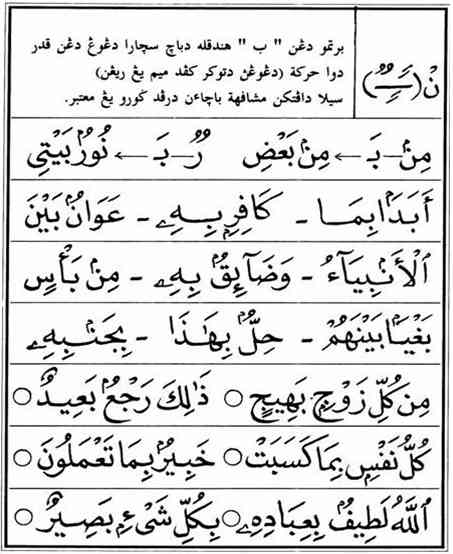 نْ (ـًـٍـٌ)
برتمو دڠن " ب " هندقله دباچ سچارا دڠوڠ دڠن قدر
دوا حركة (دڠوڠن دتوكر كڤد ميم يڠ ريڠن)
سيلا داڤتكن مشافهة باچاءن درڤد ݢورو يڠ معتبر.
مِنۢ – بَـ ← مِنۢ بَعْضِ   رٌۢ – بَـ ← نُورٌۢ بَيْتِي
أَبَدَۢا بِمَا – كَافِرِۭ بِهِۦ – عَوَانُۢ بَيْنَ
ٱلْأَنۢبِيَآءُ – وَضَآئِقُۢ بِهِۦ – مِنۢ بَأْسٍ
بَغْيَۢا بَيْنَهُمْ – حِلُّۢ بِهَٰذَا – بِجَنۢبِهِۦ
مِن كُلِّ زَوْجِۭ بَهِيجٍ ○ ذَٰلِكَ رَجْعُۢ بَعِيدٌ ○
كُلُّ نَفْسِۭ بِمَا كَسَبَتْ ○ خَبِيرُۢ بِمَا تَعْمَلُونَ ○
ٱللَّهُ لَطِيفُۢ بِعِبَادِهِۦ ○ بِكُلِّ شَىْءِۭ بَصِيرٌ ○